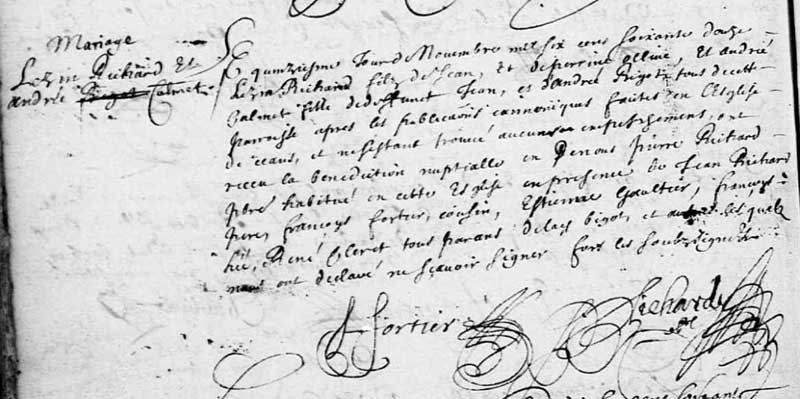 Mariage
Lezin Richard Et
andrée Bigot Calmet
Le quinziesme Jour de Novembre mil six cens Soixante douze
Lezin Richard filz de Jean, et de perrine ollive, et andrée
Calmet fille de deffunct Jean, et d'andrée Bigot tous de cette
parroisse apres les publications cannoniques faites en l'Eglise
de ceans, et ne s'estant trouvé aucun empeschement, ont
receu la benediction nuptialle en De nous pierre Richard
pbre habitué en cette Eglise en presence de Jean Richard
pere, françoys fortier, cousin, Estienne Gaultier, françoys
René Cleret tous parans de lays bigot, et les quelz
nous ont declaré ne sçavoir signer fors les soubzsignés
f fortier
P Richard